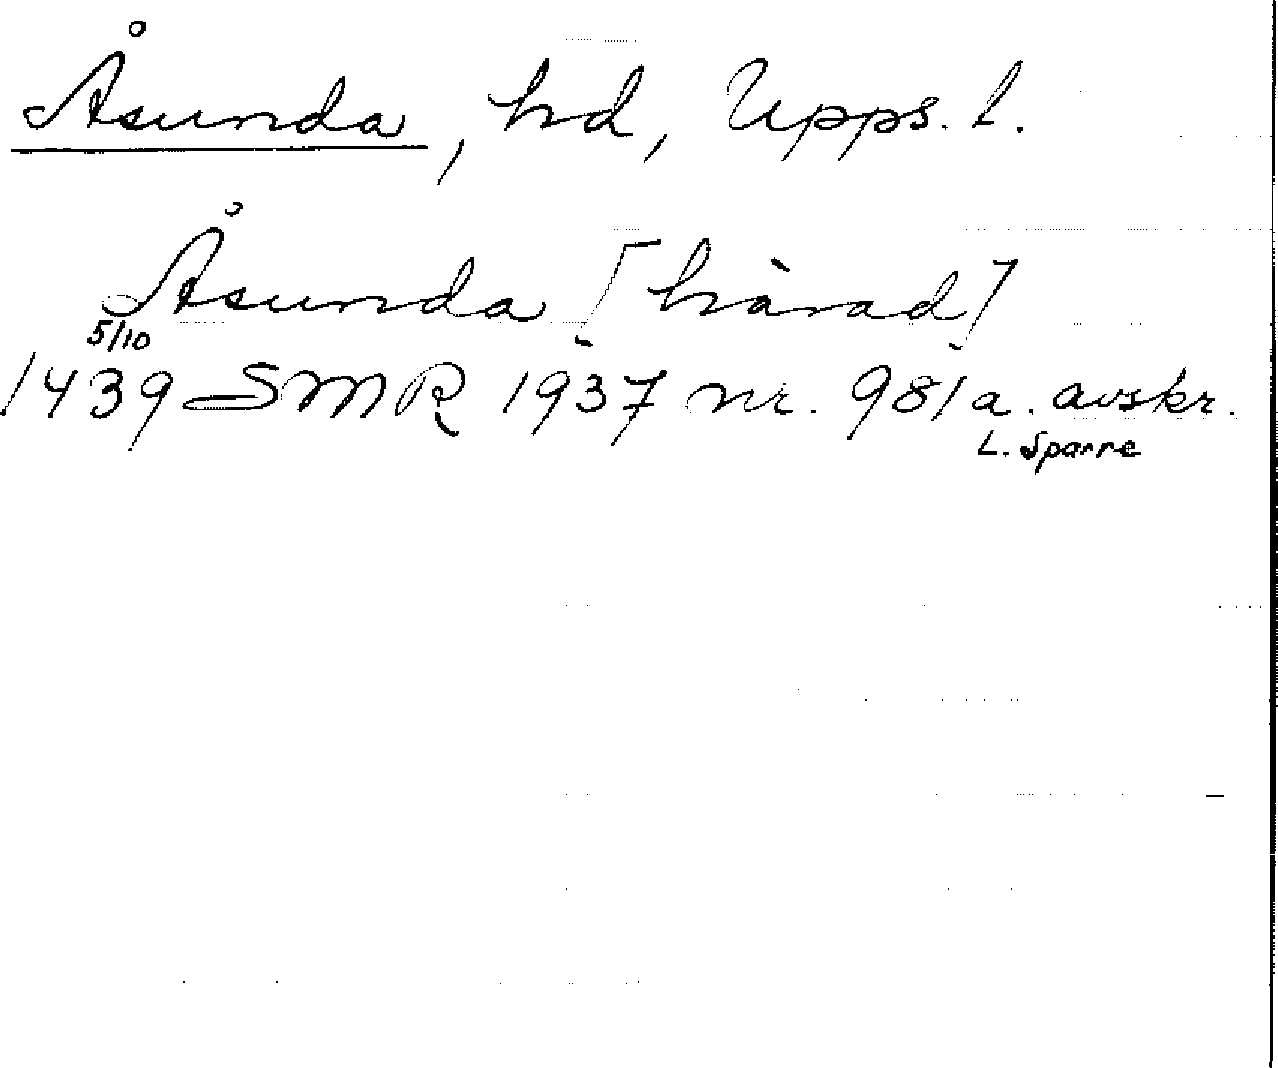 Åsunda, hd, Upps. l.
Åsunda [härad]
5/10
1439 SMR 1937 nr. 981 a. avskr.
L. Sparre